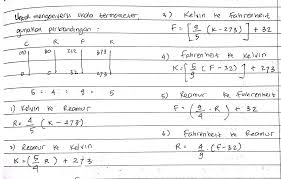 Untuk mengonversi skala termometer,
gunakan perbandingan :
C R F K
100 80 212 373
0 0 32 273
5 : 4 : 9 : 5
1) Kelvin ke Reamur
R = 4/5 (K - 273)
2) Reamur ke Kelvin
K = (5/4 R) + 273
3) Kelvin ke Fahrenheit
F = [9/5 (K - 273)] + 32
4) Fahrenheit ke Kelvin
K = [5/9 (F - 32)] + 273
5) Reamur ke Fahrenheit
F = (9/4 . R) + 32
6) Fahrenheit ke Reamur
R = 4/9 . (F - 32)